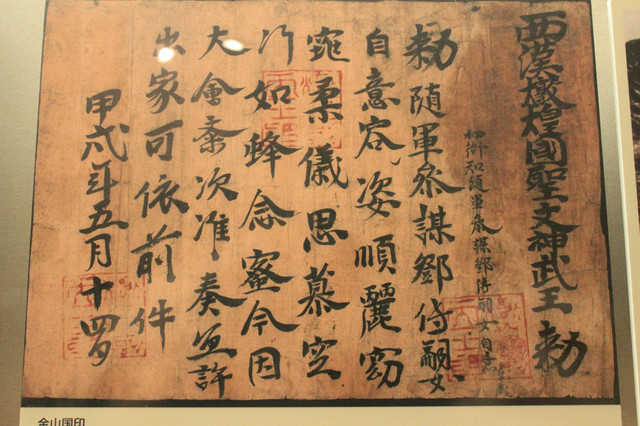 西漢燉煌國聖文神武王勅
押衙知隨軍參謀鄧傳嗣女自意
勅隨軍參謀鄧傳嗣女
自意容姿順麗窈
窕柔儀思慕空
門如蜂念蜜今因
大會齋次准奏宜許
出家可依前件
甲戌年五月十四日
金山国印